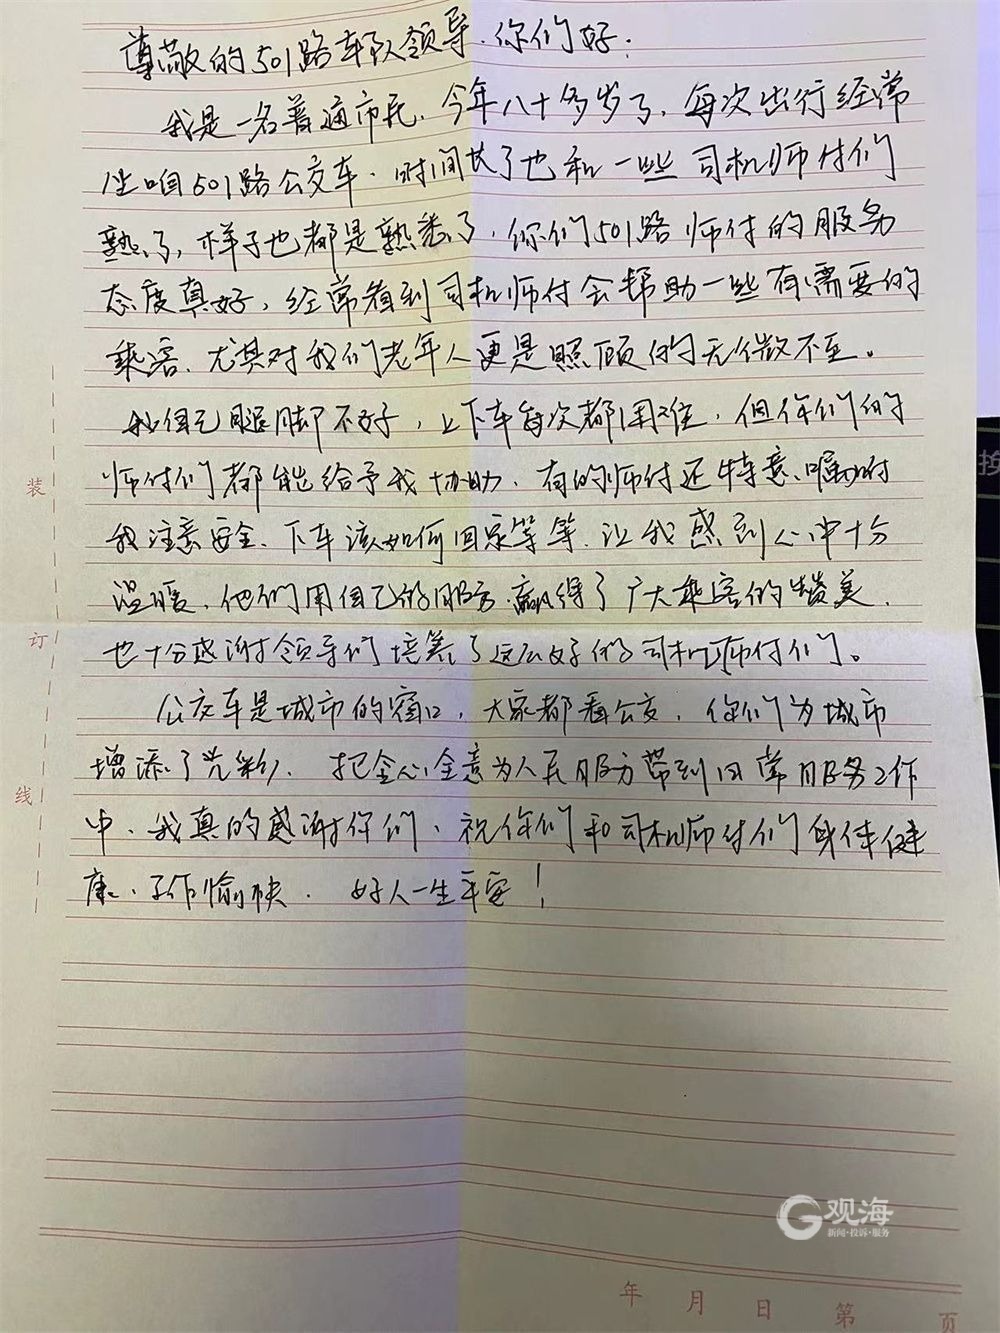 尊敬的501路车队领导.你们好:
我是一名普通市民.今年八十多岁了,每次出行经常
坐咱501路公交车.时间长了也和一些司机师付们
熟了,样子也都是熟悉了.你们501路师付的服务
态度真好,经常看到司机师付会帮助一些有需要的
乘客.尤其对我们老年人更是照顾的无微不至。
我自己腿脚不好,上下车每次都困难,但你们的
师付们都能给予我协助.有的师付还特意嘱咐
我注意安全.下车该如何回家等等.让我感到心中十分
温暖.他们用自己的服务.赢得了广大乘客的赞美.
也十分感谢领导们培养了这么好的司机师付们。
公交车是城市的窗口,大家都看公交.你们为城市
增添了光彩.把全心全意为人民服务带到日常服务工作
中.我真的感谢你们、祝你们和司机师付们身体健
康.工作愉快.好人一生平安!
装
订
线
观海
新闻·投诉·服务
年 月 日 第 页